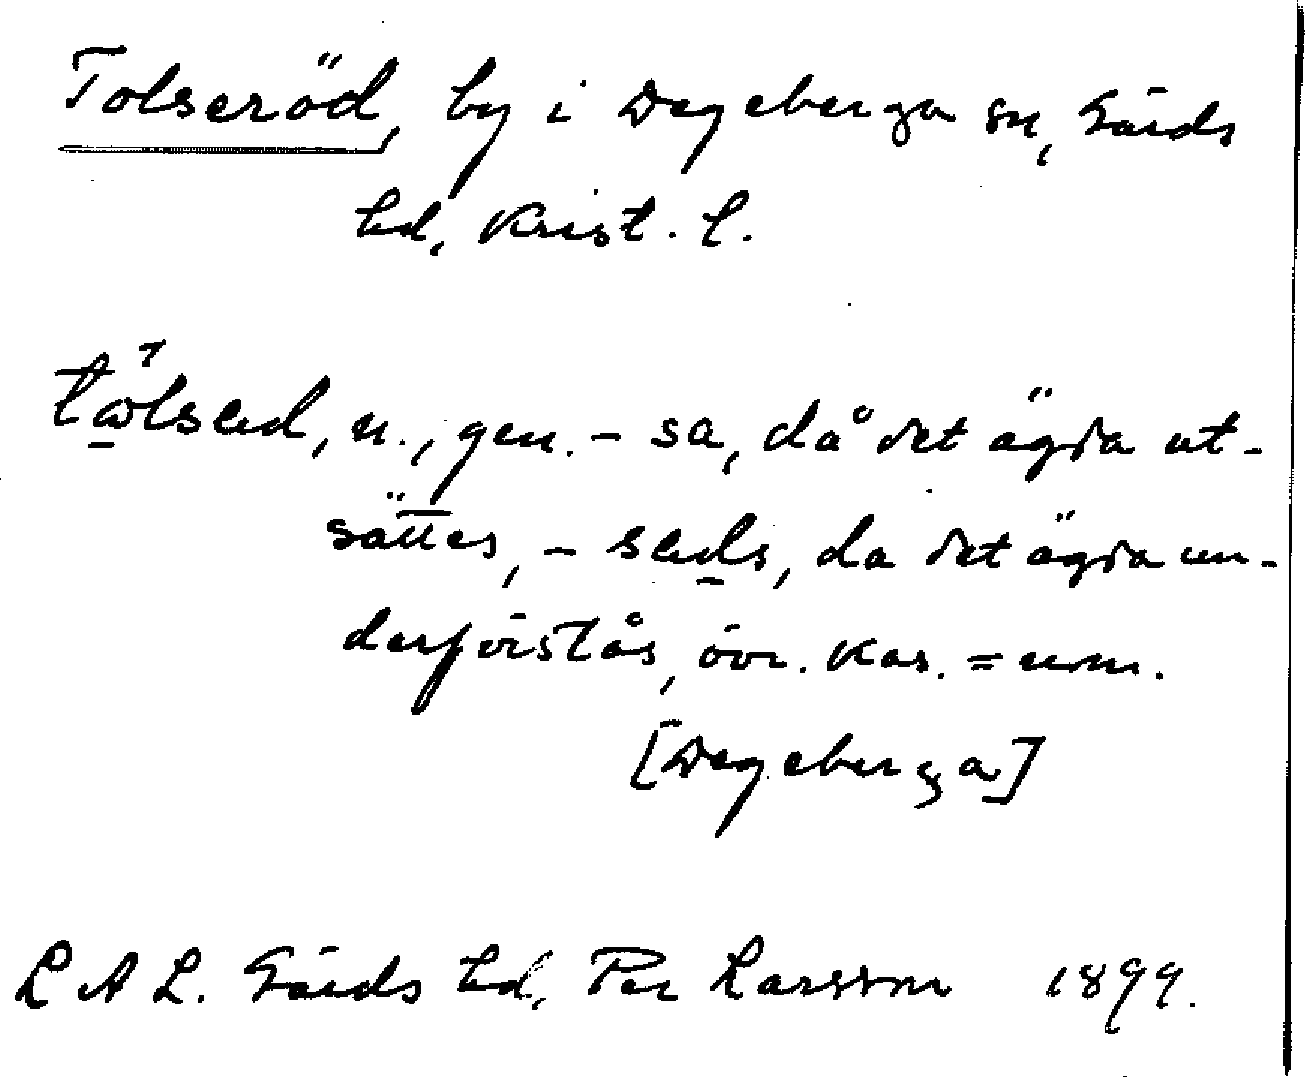 Tolseröd, by i Degeberga sn, Gärds
hd, Krist. l.
tålsed, n., gen. - sa, då det ägda ut-
sättes, - seds, da det ägda un-
derförstås, övr. kas. = nom.
[Degeberga]
L A L. Gärds hd, Per Larsson 1899.